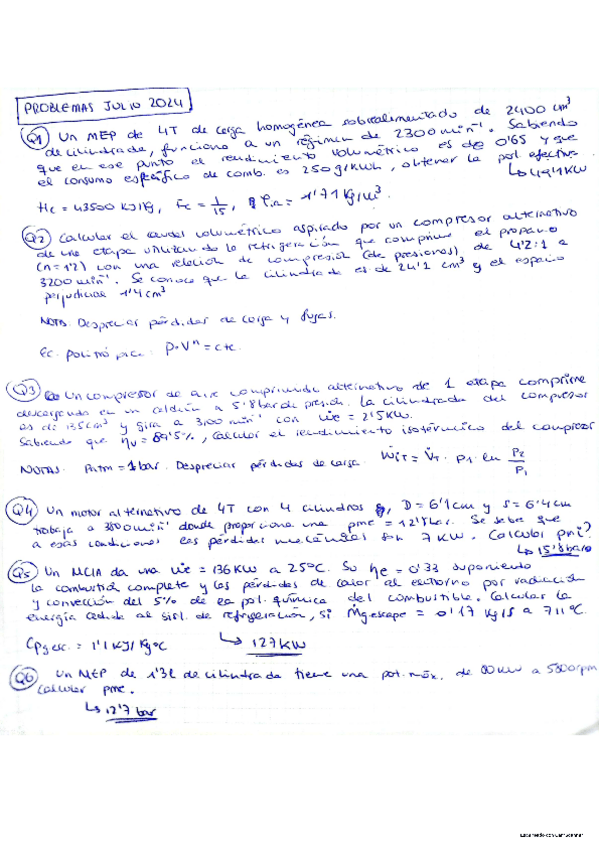 PROBLEMAS JULIO 2024
Q1 Un MEP de 4T de carga homogénea sobrealimentado de 2400 cm³
de cilindrada, funciona a un régimen de 2300 min⁻¹. Sabiendo
que en ese punto el rendimiento volumétrico es de 0'65 y que
el consumo específico de comb. es 250 g/kWh, obtener la pot. efectiva.
↳ 49'1 kW
Hc = 43500 KJ/Kg, Fc = 1/15, ρa = 1'71 Kg/m³.
Q2 Calcular el caudal volumétrico aspirado por un compresor alternativo
de una etapa utilizando la refrigeración que comprime el propano
(n=1'2) con una relación de compresión (de presiones) de 4'2:1 a
3200 min⁻¹. Se conoce que la cilindrada es de 24'2 cm³ y el espacio
perjudicial 1'4 cm³
NOTA: Despreciar pérdidas de carga y fugas.
Ec. politrópica: P·Vⁿ = cte.
Q3 Un compresor de aire comprimido alternativo de 1 etapa comprime
descargando en un calderín a 5'8 bar de presión. La cilindrada del compresor
es de 135 cm³ y gira a 3100 min⁻¹ con Ẇe = 2'5 KW.
Sabiendo que ηv = 89'5%, calcular el rendimiento isotérmico del compresor
NOTAS: Patm = 1 bar. Despreciar pérdidas de carga. ẆiT = V̇T · P1 · ln P2/P1
Q4 Un motor alternativo de 4T con 4 cilindros, D = 6'1 cm y S = 6'4 cm
trabaja a 3800 min⁻¹ donde proporciona una pme = 12'8 bar. Se sabe que
a esas condiciones las pérdidas mecánicas son 7 KW. Calcular pmi?
↳ 15'8 bar
Q5 Un MCIA da una Ẇe = 136 KW a 25ºC. Su ηe = 0'33 suponiendo
la combustión completa y las pérdidas de calor al entorno por radiación
y convección del 5% de la pot. química del combustible. Calcular la
energía cedida al sist. de refrigeración, si ṁgescape = 0'17 Kg/s a 711ºC.
Cpg esc. = 1'1 KJ/KgºC ↳ 127 KW
Q6 Un MEP de 1'3 L de cilindrada tiene una pot. máx. de 80 KW a 5800 rpm
calcular pme.
↳ 12'7 bar